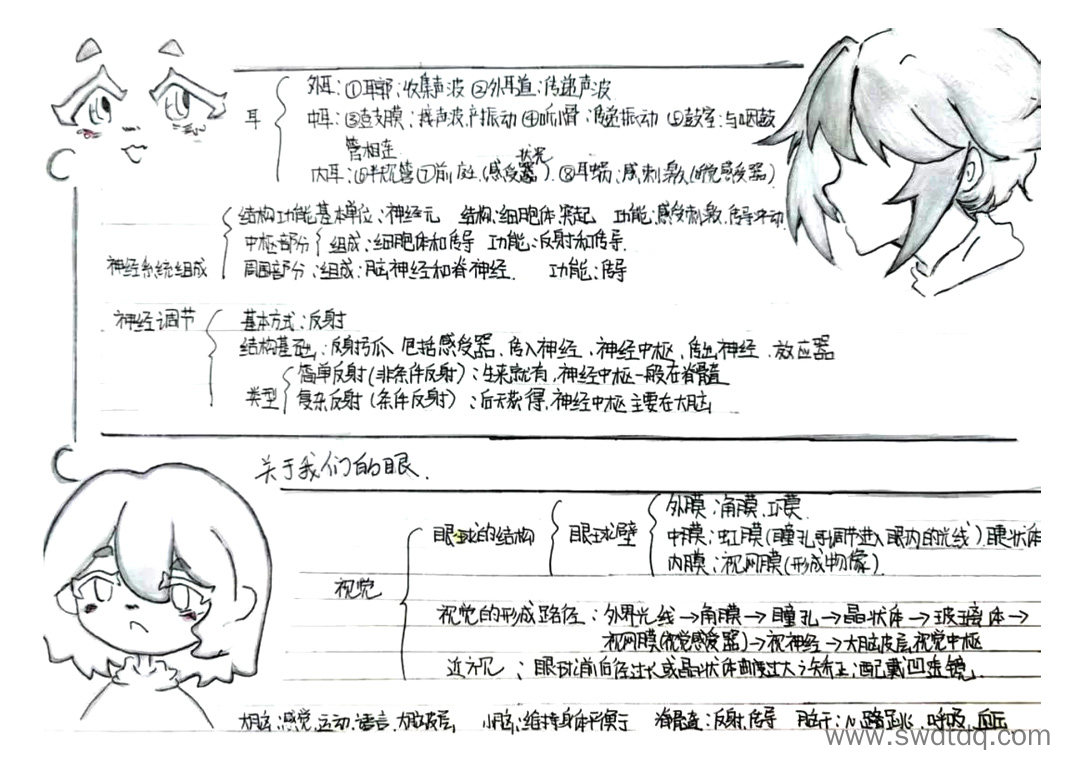 耳
外耳:①耳郭:收集声波 ②外耳道:传递声波
中耳:③鼓膜:将声波产振动 ④听小骨:传递振动 ⑤鼓室:与咽鼓
管相连
内耳:⑥半规管⑦前庭(感受器) ⑧耳蜗:感刺激(听觉感受器)
状况
神经系统组成
结构功能基本单位:神经元 结构:细胞体突起 功能:感受刺激,传导冲动
中枢部分 组成:细胞体和传导 功能:反射和传导.
周围部分:组成:脑神经和脊神经. 功能:传导
神经调节
基本方式:反射
结构基础:反射弧 包括感受器、传入神经、神经中枢、传出神经、放应器
类型
简单反射(非条件反射):生来就有,神经中枢一般在脊髓
复杂反射(条件反射):后天获得,神经中枢主要在大脑
关于我们的眼.
视觉
眼球的结构
眼球壁
外膜:角膜、巩膜
中膜:虹膜(瞳孔可调节进入眼内的光线)
内膜:视网膜(形成物像)
视觉的形成路径:外界光线→角膜→瞳孔→晶状体→玻璃体→
视网膜(视觉感受器)→视神经→大脑皮层视觉中枢
近况:眼球前后径过长或晶状体曲度过大 矫正:配戴凹透镜
大脑:感觉、运动、语言、大脑皮层 小脑:维持身体平衡 脊髓:反射,传导 脑干:心路跳、呼吸、血压
www.swdtdq.com